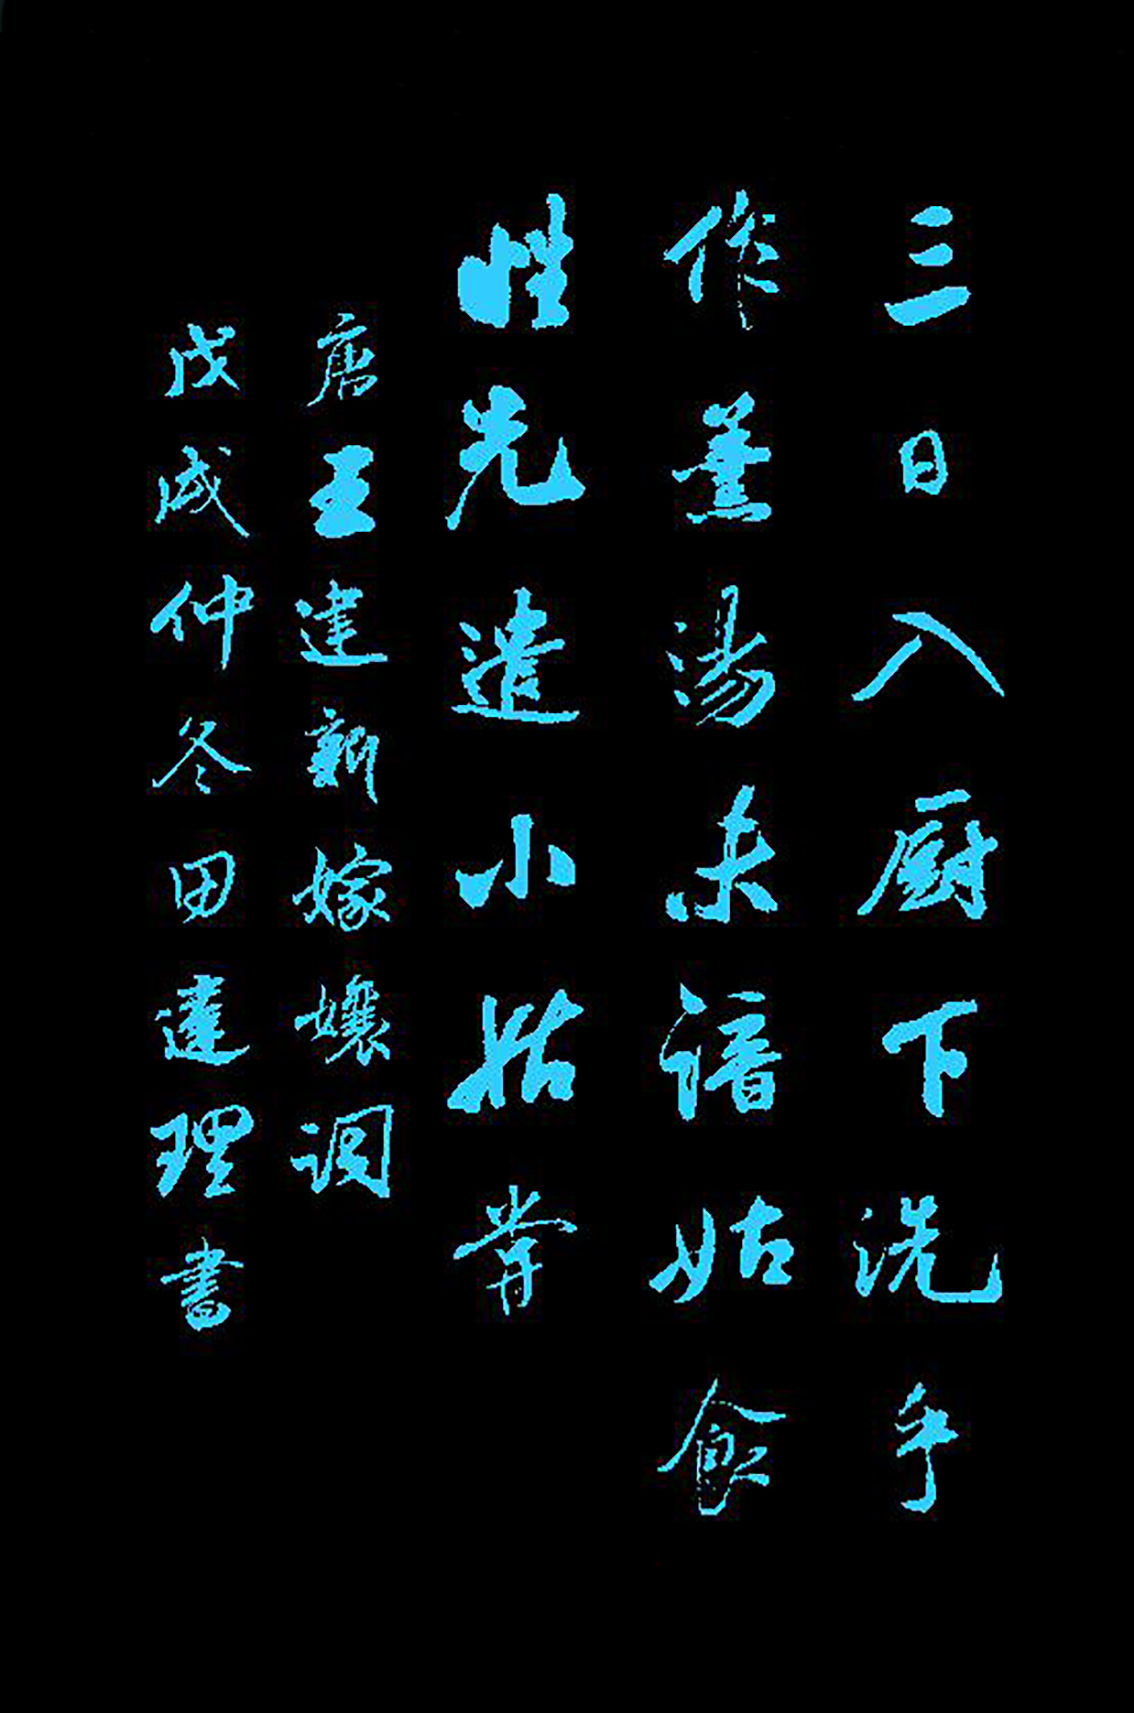 三日入厨下洗手
作羹湯未諳姑食
性先遣小姑嘗
唐王建新嫁孃詞
戊戌仲冬田達理書